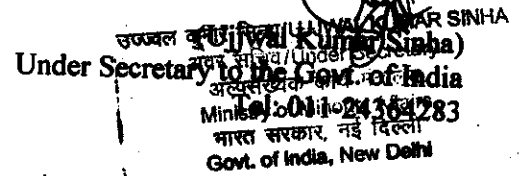 उज्ज्वल कुमार सिन्हा/UJJWAL KUMAR SINHA
(Ujjwal Kumar Sinha)
अवर सचिव/Under Secretary
Under Secretary to the Govt. of India
अल्पसंख्यक कार्य मंत्रालय
Ministry of Minority Affairs
Tel: 011-24364283
भारत सरकार, नई दिल्ली
Govt. of India, New Delhi